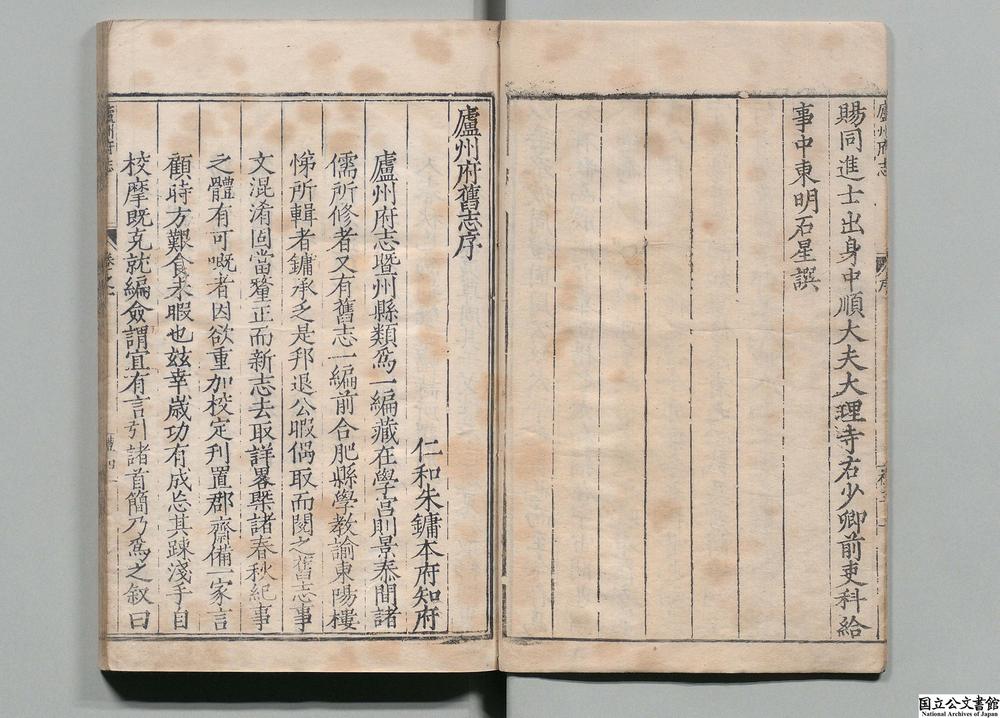 廬州府志
序
賜同進士出身中順大夫大理寺右少卿前吏科給
事中東明石星譔
廬州府舊志序
仁和朱鏞本府知府
廬州府志暨州縣類爲一編藏在學宫則景泰間諸
儒所修者又有舊志一編前合肥縣學教諭東陽樓
悌所輯者鏞承乏是邦退公暇偶取而閱之舊志事
文混淆固當釐正而新志去取詳畧槩諸春秋紀事
之體有可嘅者因欲重加校定刋置郡齋備一家言
顧時方艱食未暇也玆幸歲功有成忘其踈淺手自
校摩既克就編僉謂宜有言引諸首簡乃爲之叙曰
廬州府志
卷之一
国立公文書館
National Archives of Japan